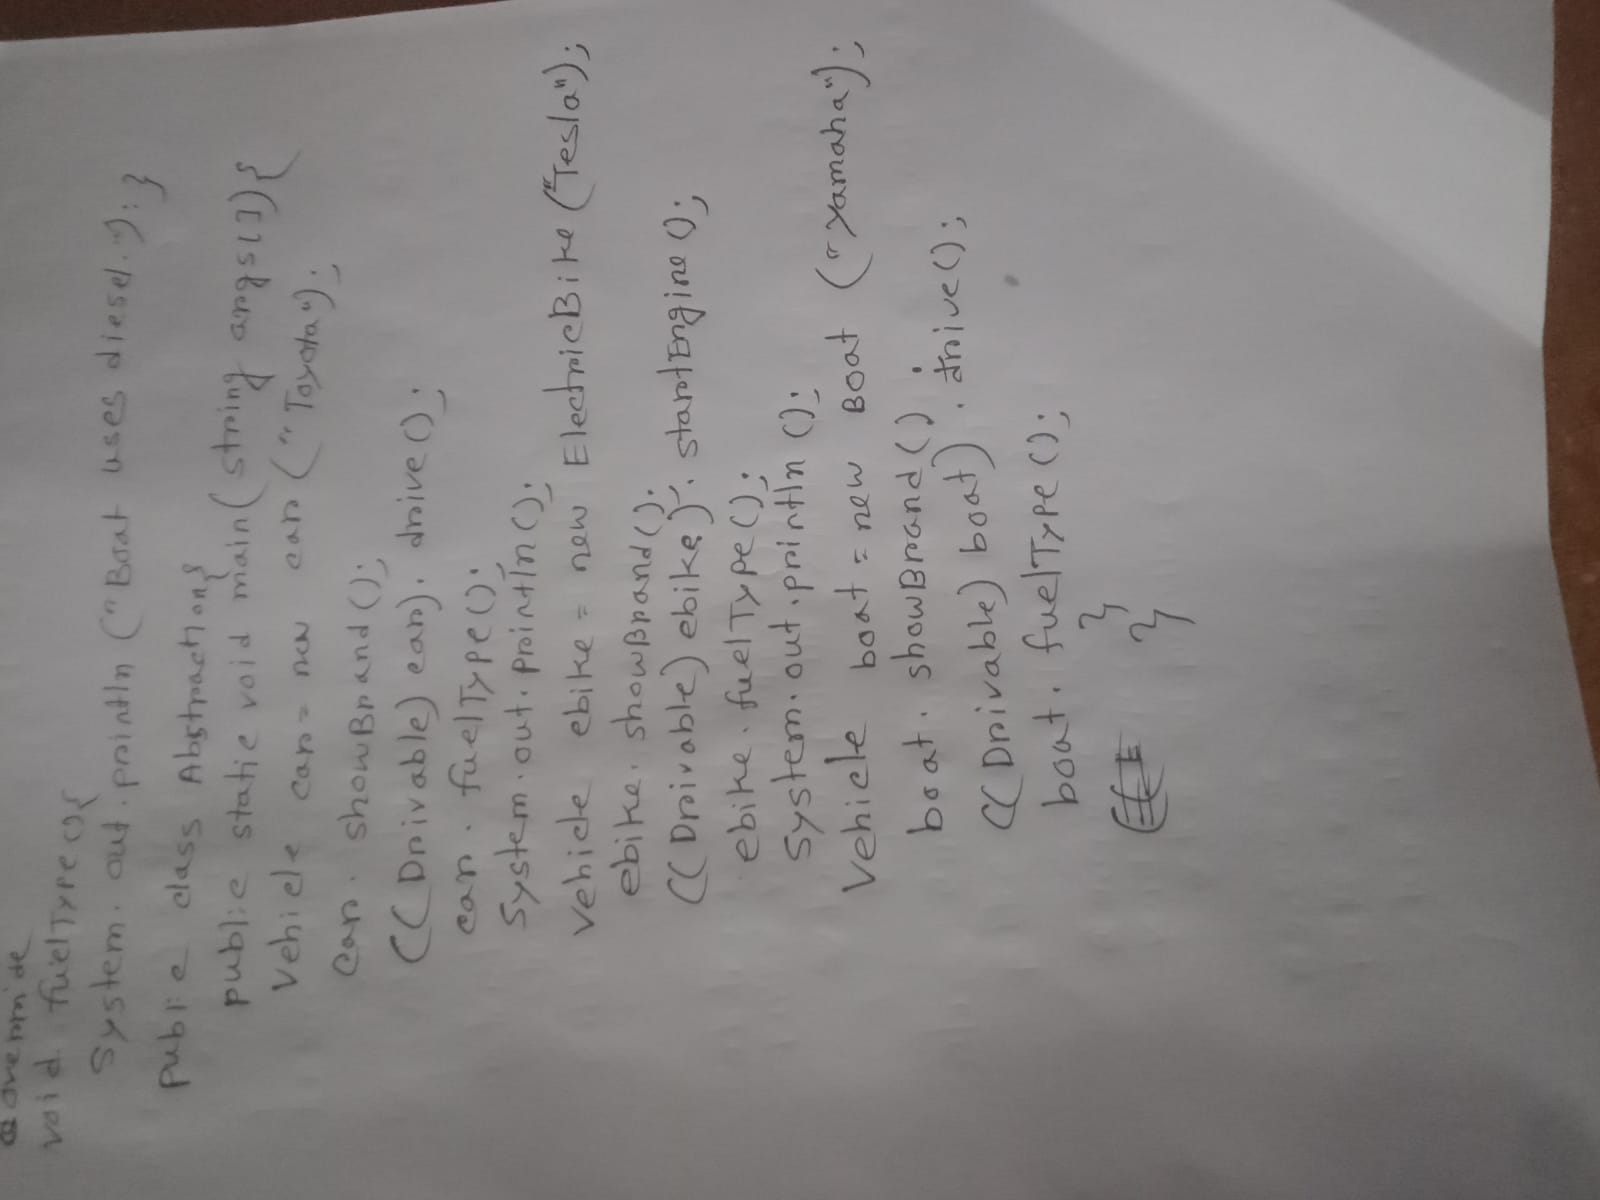 @ Override
void fuelType(){
System.out.println("Boat uses diesel.");}
public class Abstraction{
public static void main(string args[]){
Vehicle car = new car ("Toyota");
car. showBrand();
((Drivable) car). drive();
car. fuelType();
System.out.println();
Vehicle ebike = new ElectricBike ("Tesla");
ebike. showBrand();
((Drivable) ebike). startEngine();
ebike. fuelType();
System.out.println();
Vehicle boat = new Boat ("yamaha");
boat. showBrand();
((Drivable) boat). drive();
boat. fuelType();
}
}